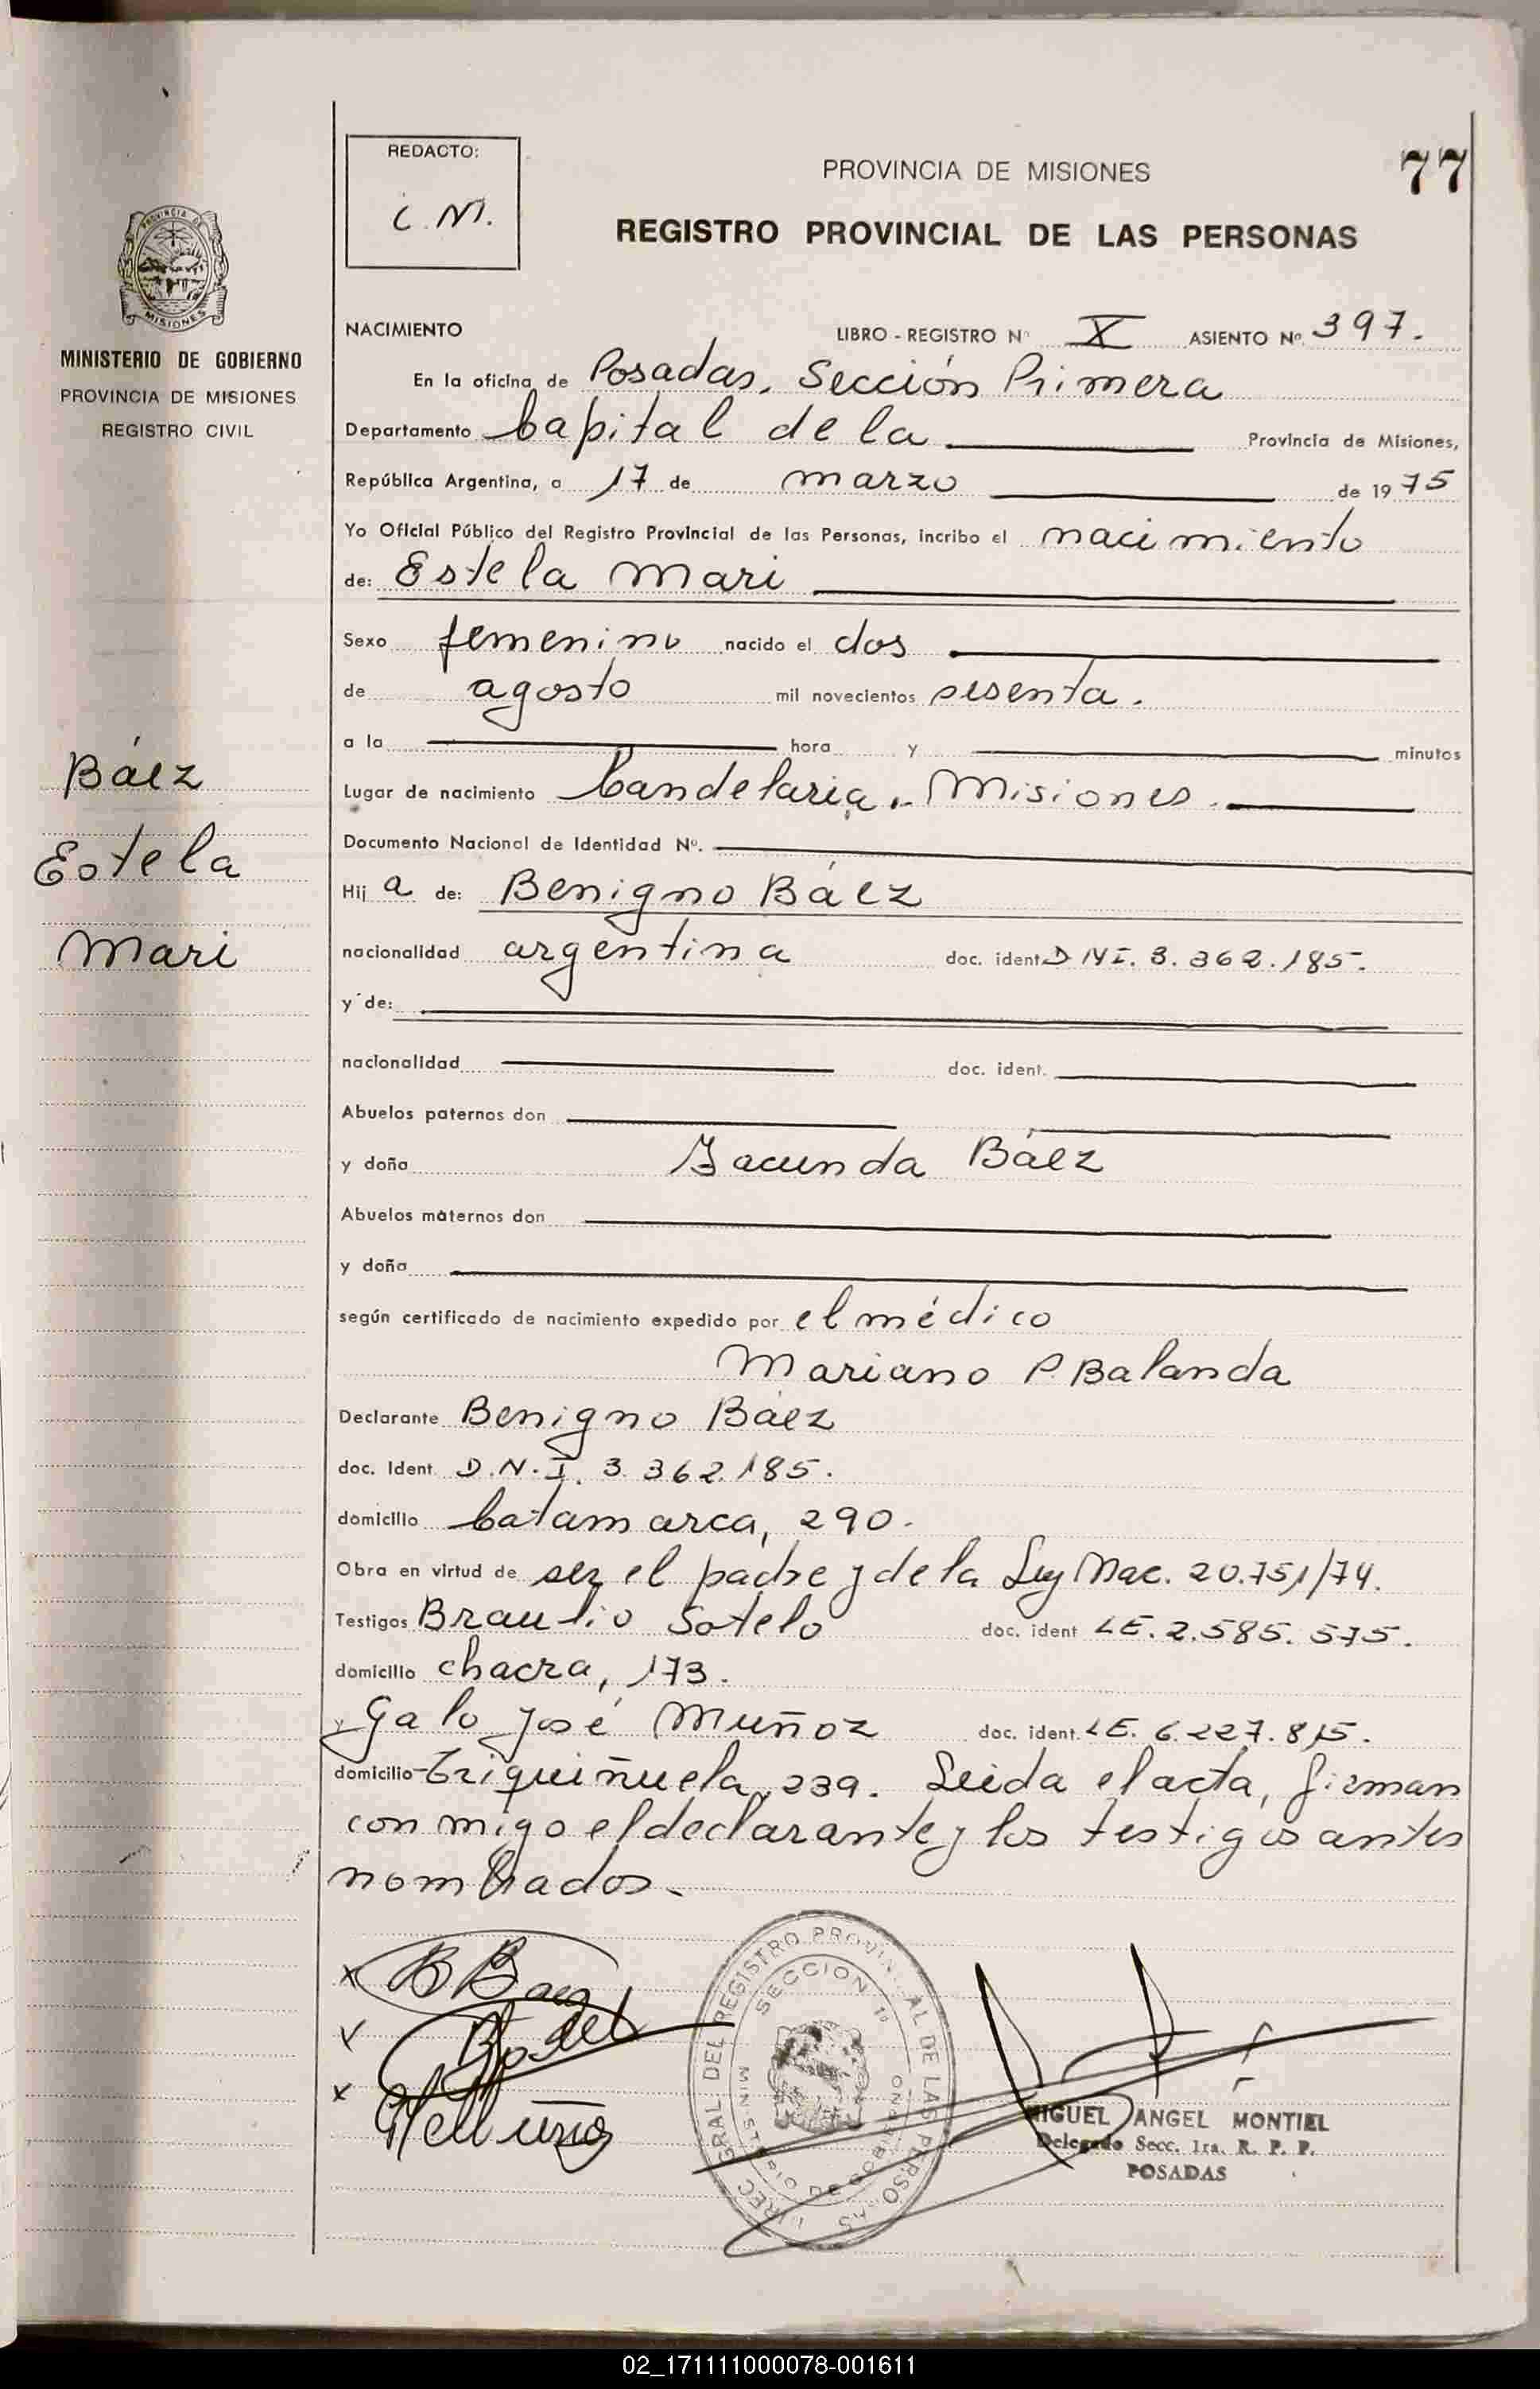 REDACTO:
C. M.
PROVINCIA DE MISIONES
77
REGISTRO PROVINCIAL DE LAS PERSONAS
PROVINCIA DE
MISIONES
MINISTERIO DE GOBIERNO
PROVINCIA DE MISIONES
REGISTRO CIVIL
Báez
Estela
Mari
NACIMIENTO LIBRO - REGISTRO Nº X ASIENTO Nº 397.
En la oficina de Posadas, Sección Primera
Departamento Capital de la Provincia de Misiones,
República Argentina, a 17 de marzo de 1975
Yo Oficial Público del Registro Provincial de las Personas, incribo el nacimiento
de: Estela Mari
Sexo femenino nacido el dos
de agosto mil novecientos sesenta.
a la hora y minutos
Lugar de nacimiento Candelaria, Misiones.
Documento Nacional de Identidad Nº.
Hij a de: Benigno Báez
nacionalidad argentina doc. ident. DNI. 3.362.185.
y de:
nacionalidad doc. ident.
Abuelos paternos don
y doña Facunda Báez
Abuelos maternos don
y doña
según certificado de nacimiento expedido por el médico
Mariano P. Balanda
Declarante Benigno Báez
doc. Ident. D.N.I. 3.362.185.
domicilio Catamarca, 290.
Obra en virtud de ser el padre y de la Ley Nac. 20.751/74.
Testigos Braulio Sotelo doc. ident. LE. 2.585.575.
domicilio chacra, 173.
y Galo José Muñoz doc. ident. LE. 6.227.815.
domicilio Triquiñuela, 239. Leida el acta, firman
con migo el declarante y los testigos antes
nombrados.
B Baez
SECCION 1ª
MINISTERIO DE GOBIERNO
MIGUEL ANGEL MONTIEL
Delegado Secc. 1ra. R. P. P.
POSADAS
02_171111000078-001611